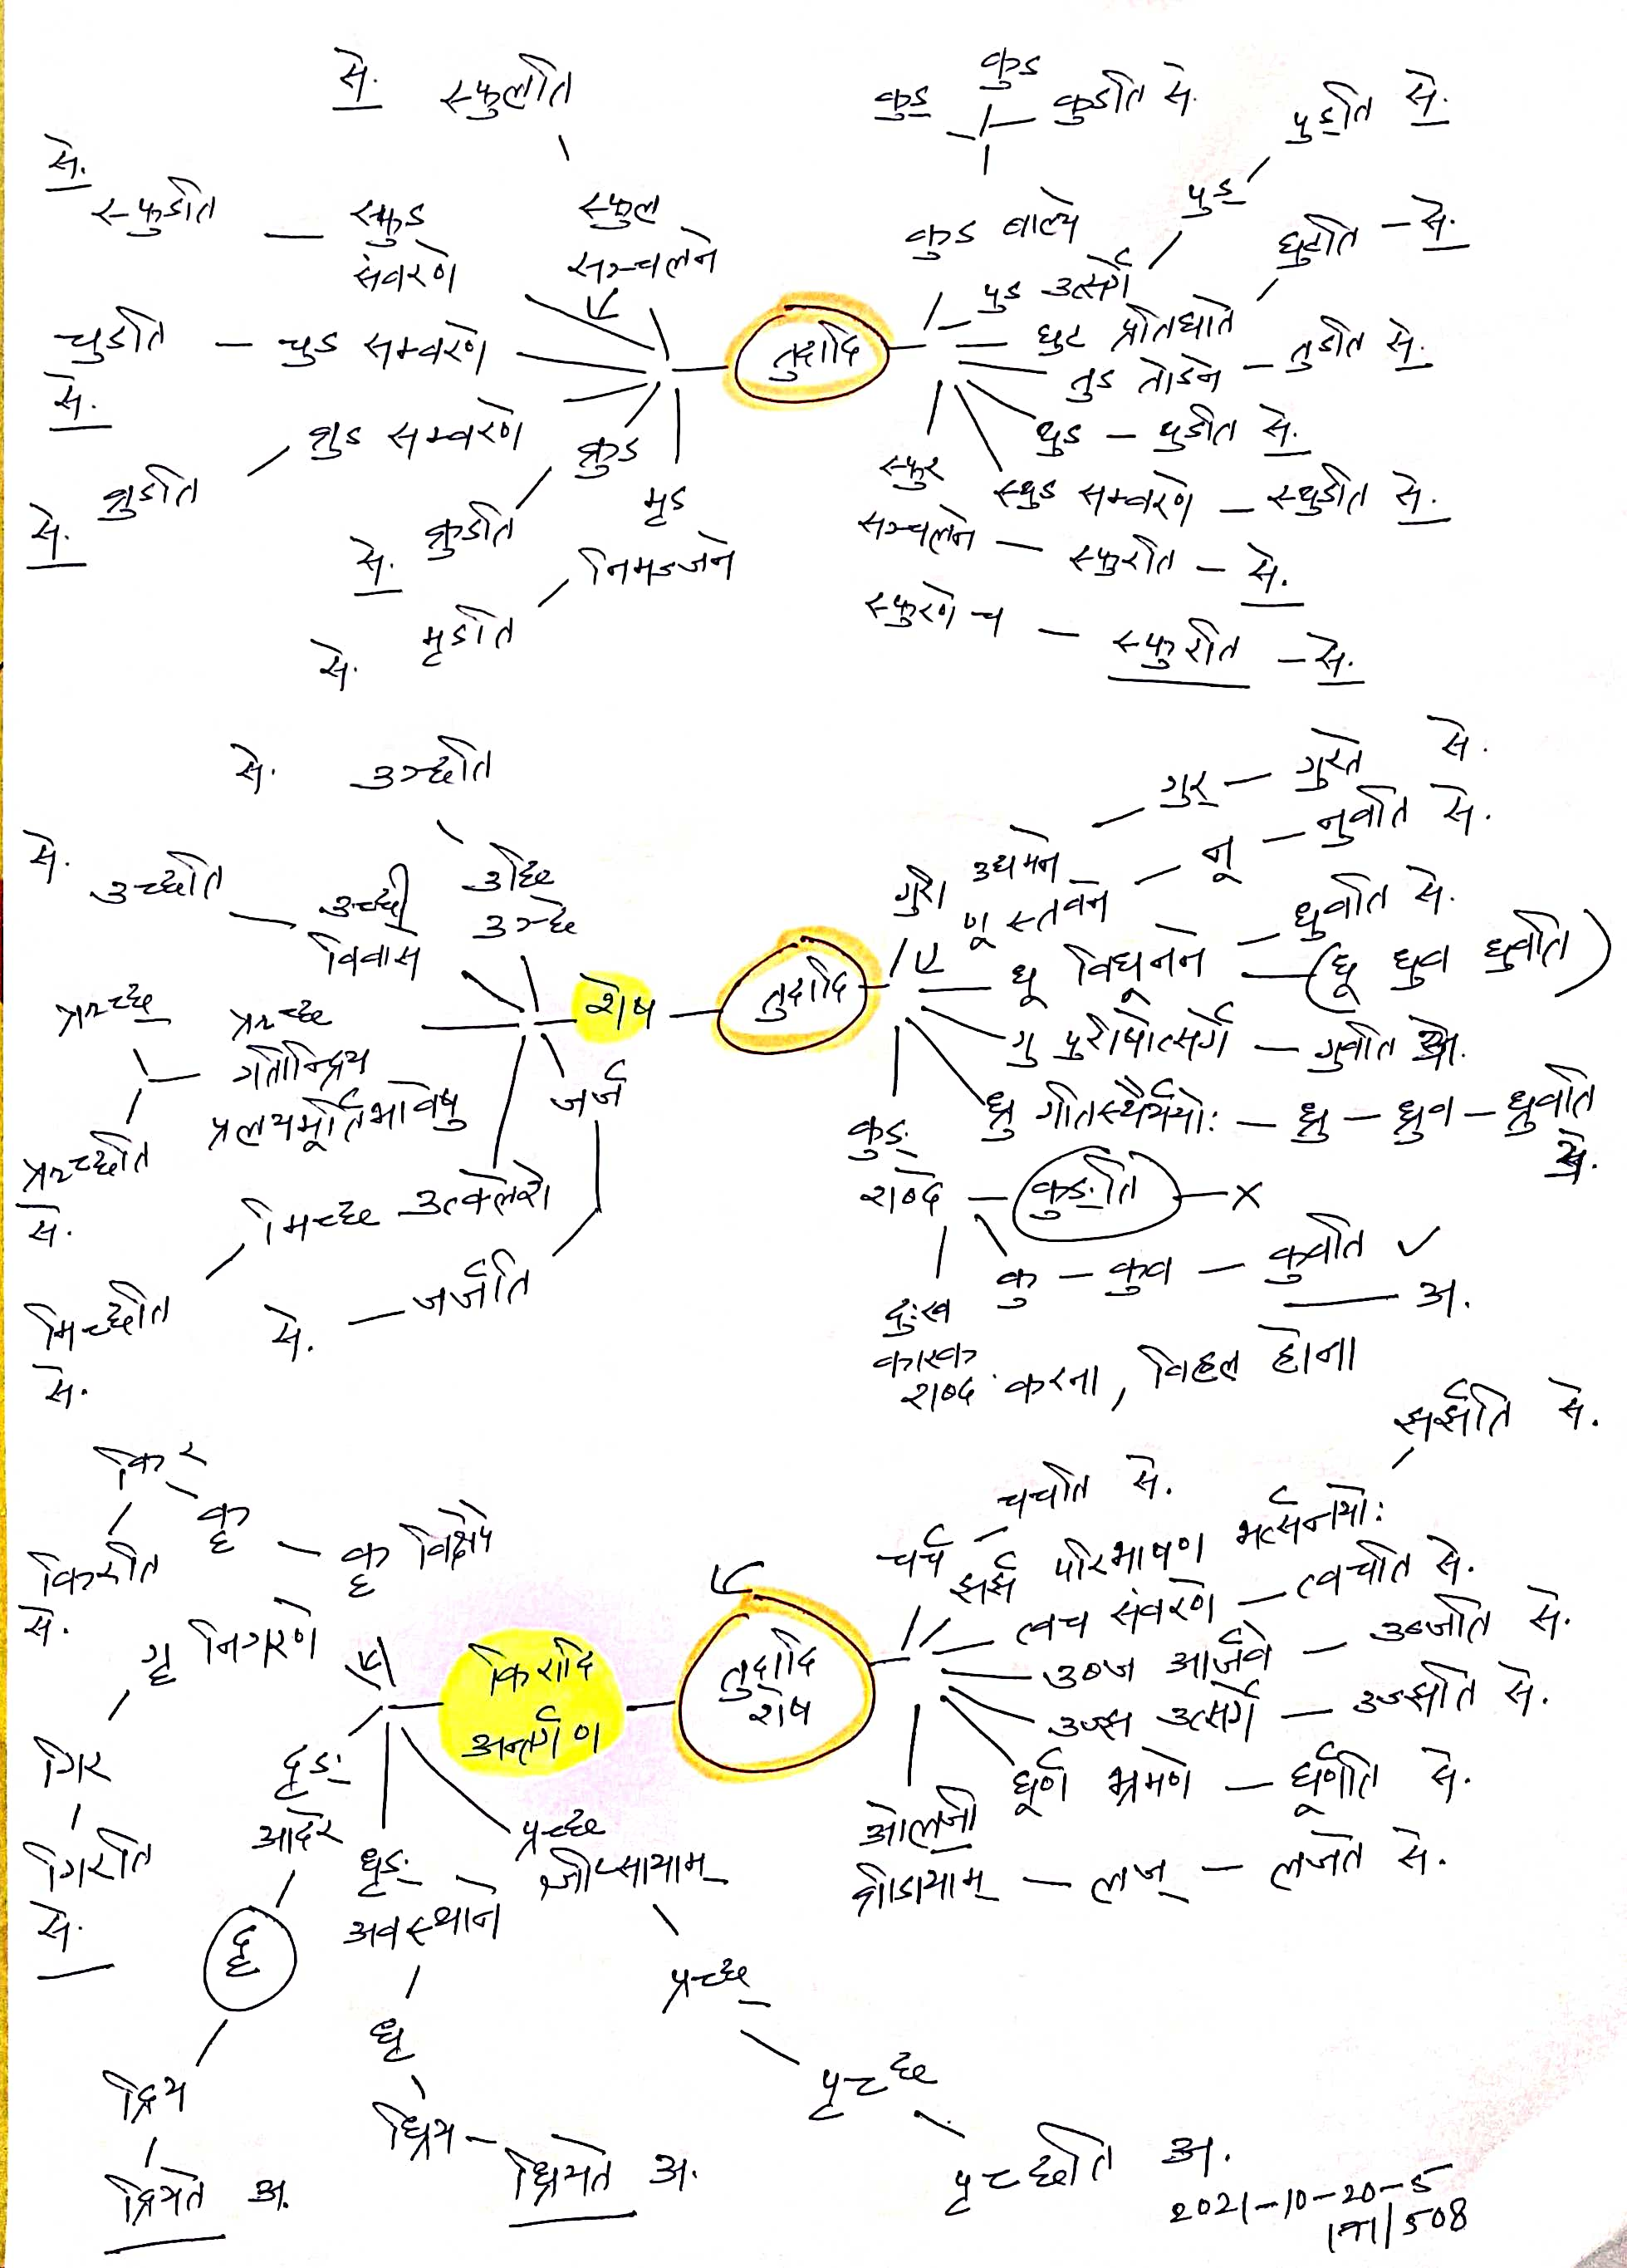 से. स्फुलति
से. स्फुडति — स्फुड संवरणे
स्फुल सञ्चलने
चुडति — चुड सम्वरणे
से.
थुड सम्वरणे
से. थ्रुडति
क्रुड
से. क्रुडति
मृड निमज्जने
से. मृडति
तुदादि
कुड कुड कुडति से.
कुड बाल्ये
पुड उत्सर्गे पुड पुडति से.
घुट प्रतिघाते घुटति — से.
तुड तोडने — तुडति से.
थुड — थुडति से.
स्थुड सम्वरणे — स्थुडति से.
स्फुर सञ्चलने — स्फुरति — से.
स्फुरणे च — स्फुरति — से.
से. उञ्छति
से. उच्छति — उच्छी विवासे
उछि उञ्छे
शेष — तुदादि
ऋच्छ ऋच्छ
गतीन्द्रिय
प्रलयमूर्तिभावेषु
ऋच्छति
से.
जर्ज
से. — जर्जति
मिच्छ उत्क्लेशे
मिच्छति
से.
गुरी उद्यमने — गुर् — गुरते से.
णू स्तवने — नू — नुवति से.
धू विधूनने — धुवति से.
(धू धुव धुवति)
गु पुरीषोत्सर्गे — गुवति अ.
ध्रु गतिस्थैर्ययोः — ध्रु — ध्रुव — ध्रुवति
अ.
कुङ् शब्दे — कुङ्ति — x
कु — कुव — कुवति ✓
— अ.
दुःख
कारक
शब्द करना, विह्वल होना
किर कॄ — कॄ विक्षेपे
किरति
से.
गॄ निगरणे
गिर
गिरति
से.
किरादि
अन्तर्गण
तुदादि
शेष
दृङ् आदरे
दृ
द्रिय
द्रियते अ.
धृङ् अवस्थाने
धृ
ध्रिय — ध्रियते अ.
प्रच्छ
ज्ञीप्सायाम्
प्रच्छ्
पृच्छ
पृच्छति अ.
चर्च — चर्चति से.
झर्झ परिभाषण भर्त्सनयोः झर्झति से.
त्वच संवरणे — त्वचति से.
उब्ज आर्जवे — उब्जति से.
उज्झ उत्सर्गे — उज्झति से.
घूर्ण भ्रमणे — घूर्णति से.
ओलजी
व्रीडायाम् — लज् — लजते से.
2021-10-20-5
508